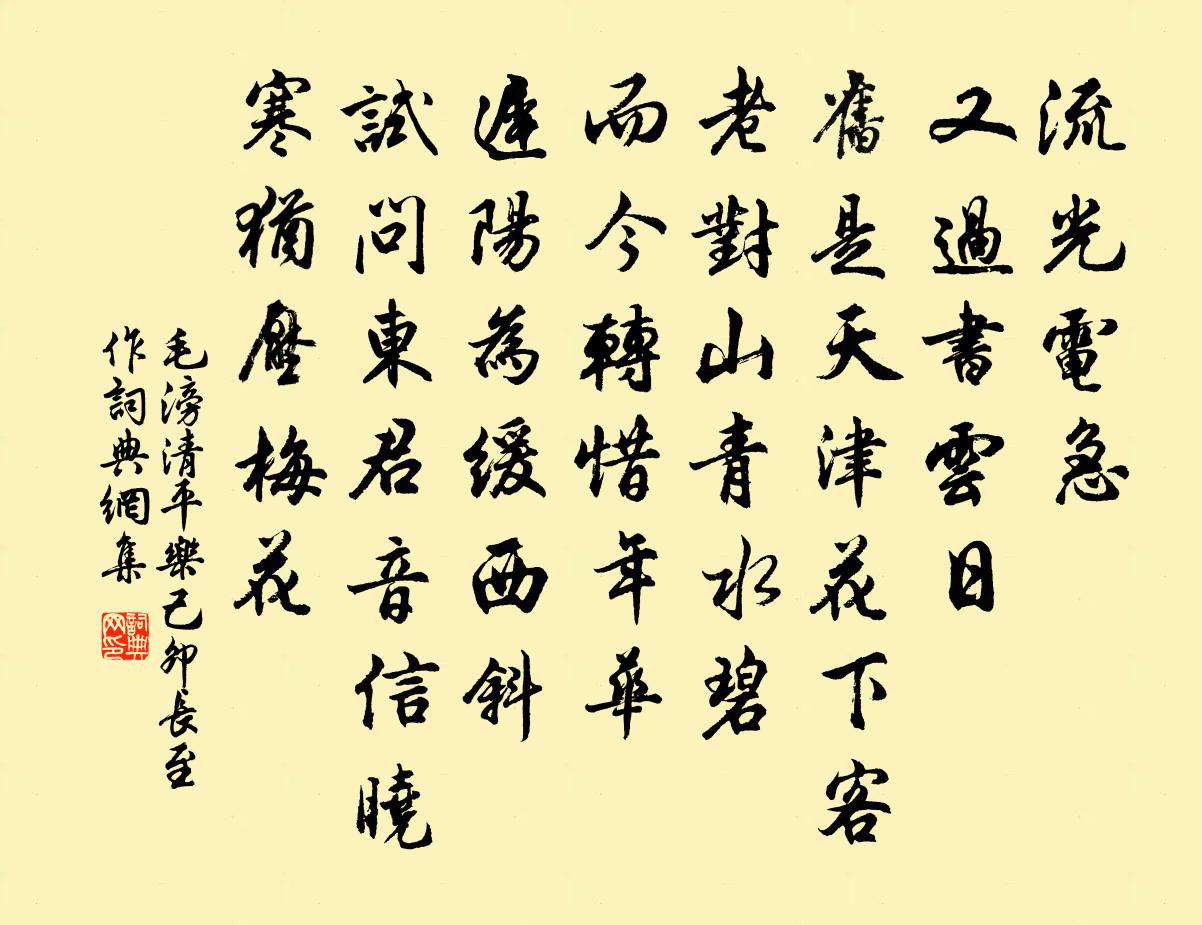 流光電急
又過書雲日
舊是天津花下客
老對山青水碧
而今轉惜年華
遲陽為緩西斜
試問東君音信曉
寒猶壓梅花
毛滂清平樂己卯長至
作詞典網集
詞典網印